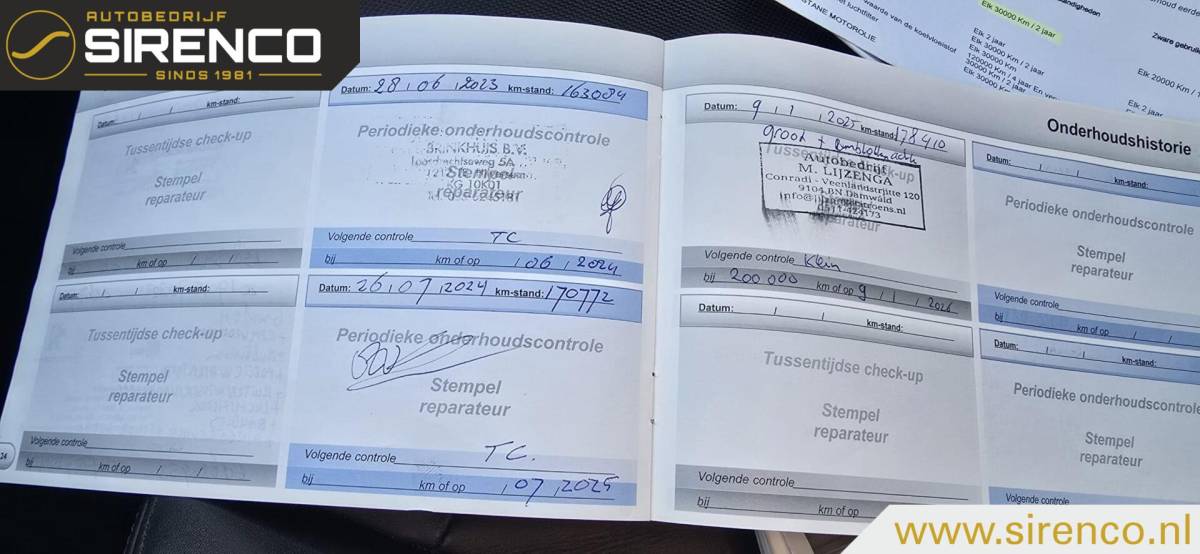 AUTOBEDRIJF
SIRENCO
SINDS 1981
Datum: / / km-stand:
Tussentijdse check-up
Stempel
reparateur
Volgende controle
bij km of op / /
Datum: 28 , 06 , 2023 km-stand: 163084
Periodieke onderhoudscontrole
BRINKHUIS B.V.
Stempel
reparateur
Volgende controle TC
bij km of op , 06 , 2024
Datum: / / km-stand:
Tussentijdse check-up
Stempel
reparateur
Volgende controle
bij km of op / /
24
Datum: 26 , 07 , 2024 km-stand: 170772
Periodieke onderhoudscontrole
Stempel
reparateur
Volgende controle TC.
bij km of op , 07 , 2025
Elk 30000 Km / 2 jaar
waarde van de koelvloeistof
Elk 2 jaar
Elk 30000 Km / 2 jaar
Elk 30000 Km
Elk 30000 Km / 2 jaar
Elk 2 jaar
Onderhoudshistorie
Datum: 9 / 1 / 2025 km-stand: 178410
groot +
Autobedrijf
M. LIJZENGA
Conradi - Veenlandstritte 120
9104 BN Damwâld
0511-424173
reparateur
Volgende controle Klein
bij 200 000 km of op 9 / 1 / 2026
Datum: / / km-stand:
Tussentijdse check-up
Stempel
reparateur
Volgende controle
bij km of op
Datum: / / km-stand:
Periodieke onderhoudscontrole
Stempel
reparateur
Volgende controle
bij km of op / /
Datum: / / km-stand:
Periodieke onderhoudscontrole
Stempel
reparateur
Volgende controle
www.sirenco.nl